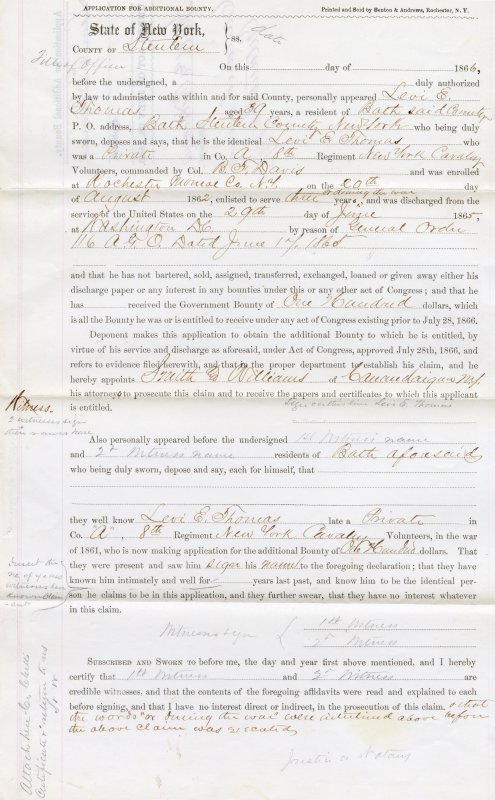 APPLICATION FOR ADDITIONAL BOUNTY.
Printed and Sold by Benton & Andrews, Rochester, N. Y.
State of New York,
COUNTY OF Steuben } ss.
Date
Title of Officer
On this day of 1866,
before the undersigned, a duly authorized
by law to administer oaths within and for said County, personally appeared Levi E.
Thomas aged 39 years, a resident of Bath said County
P. O. address, Bath Steuben County New York who being duly
sworn, deposes and says, that he is the identical Levi E Thomas who
was a Private in Co. A 8th Regiment New York Cavalry
Volunteers, commanded by Col. B. F. Davis and was enrolled
at Rochester Monroe Co. N.Y. on the 20th
or during the war
of August 1862, enlisted to serve three years, and was discharged from the
service of the United States on the 29th day of June 1865,
at Washington D.C. by reason of General Order
116 A. G. O. Dated June 17, 1865
and that he has not bartered, sold, assigned, transferred, exchanged, loaned or given away either his
discharge paper or any interest in any bounties under this or any other act of Congress; and that he
has received the Government Bounty of One Hundred dollars, which
is all the Bounty he was or is entitled to receive under any act of Congress existing prior to July 28, 1866.
Deponent makes this application to obtain the additional Bounty to which he is entitled, by
virtue of his service and discharge as aforesaid, under Act of Congress, approved July 28th, 1866, and
refers to evidence filed herewith, and that in the proper department to establish his claim, and he
hereby appoints Smith & Williams of Canandaigua N.Y.
his attorneys to prosecute this claim and to receive the papers and certificates to which this applicant
is entitled.
Sign on this line Levi E. Thomas
Witness.
2 witnesses sign
their names here
Also personally appeared before the undersigned 1st Witness name
and 2d Witness name residents of Bath aforesaid
who being duly sworn, depose and say, each for himself, that
they well know Levi E. Thomas late a Private in
Co. "A", 8th Regiment New York Cavalry Volunteers, in the war
of 1861, who is now making application for the additional Bounty of One Hundred dollars. That
they were present and saw him sign his name to the foregoing declaration; that they have
known him intimately and well for years last past, and know him to be the identical per-
son he claims to be in this application, and they further swear, that they have no interest whatever
in this claim.
Insert the
no. of years
witnesses have
known claim-
ant
Witnesses sign { 1st Witness
2d Witness
SUBSCRIBED AND SWORN to before me, the day and year first above mentioned, and I hereby
certify that 1st Witness and 2d Witness are
credible witnesses, and that the contents of the foregoing affidavits were read and explained to each
before signing, and that I have no interest direct or indirect, in the prosecution of this claim. & that
the words "or during the war" were interlined above before
the above claim was executed
Justice or Notary
Attach hereto Clerks
Certificate & return to us